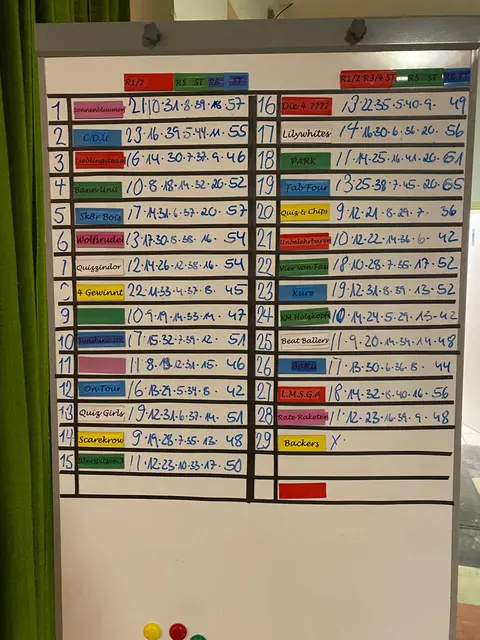 R1/2 R5 ST R6 ST
R1/2 R3/4 ST R5 ST
1 Sonnenblumen 21·10·31·8·39·18·57
2 C.D.U 23·16·39·5·44·11·55
3 Lieblingsteam 16·14·30·7·37·9·46
4 10·8·18·14·32·20·52
5 Sk8r Bois 17·14·31·6·37·20·57
6 Wolfsrudel 13·17·30·8·38·16·54
7 Quizzindor 12·14·26·12·38·16·54
8 4 Gewinnt 22·11·33·4·37·8·45
9 10·9·19·14·33·14·47
10 17·15·32·7·39·12·51
11 11·8·19·12·31·15·46
12 On Tour 16·13·29·5·34·8·42
13 Quiz Girls 19·12·31·6·37·14·51
14 Scarekrow 9·19·28·7·35·13·48
15 11·12·23·10·33·17·50
16 Die 4 ???? 13·22·35·5·40·9·49
17 Lilywhites 14·16·30·6·36·20·56
18 PARK 11·14·25·16·41·20·61
19 Fab Four 13·25·38·7·45·20·65
20 Quiz & Chips 9·12·21·8·29·7·36
21 Unbelehrbaren 10·12·22·14·36·6·42
22 Vier von Fas 18·10·28·7·35·17·52
23 Kurs 19·12·31·8·39·13·52
24 KM Holzkopf 10·14·24·5·29·13·42
25 Beat Ballers 11·9·20·14·34·14·48
26 17·13·30·6·36·8·44
27 L.M.S.G.A 18·14·32·8·40·16·56
28 Rate-Raketen 11·12·23·16·39·9·48
29 Backers X·